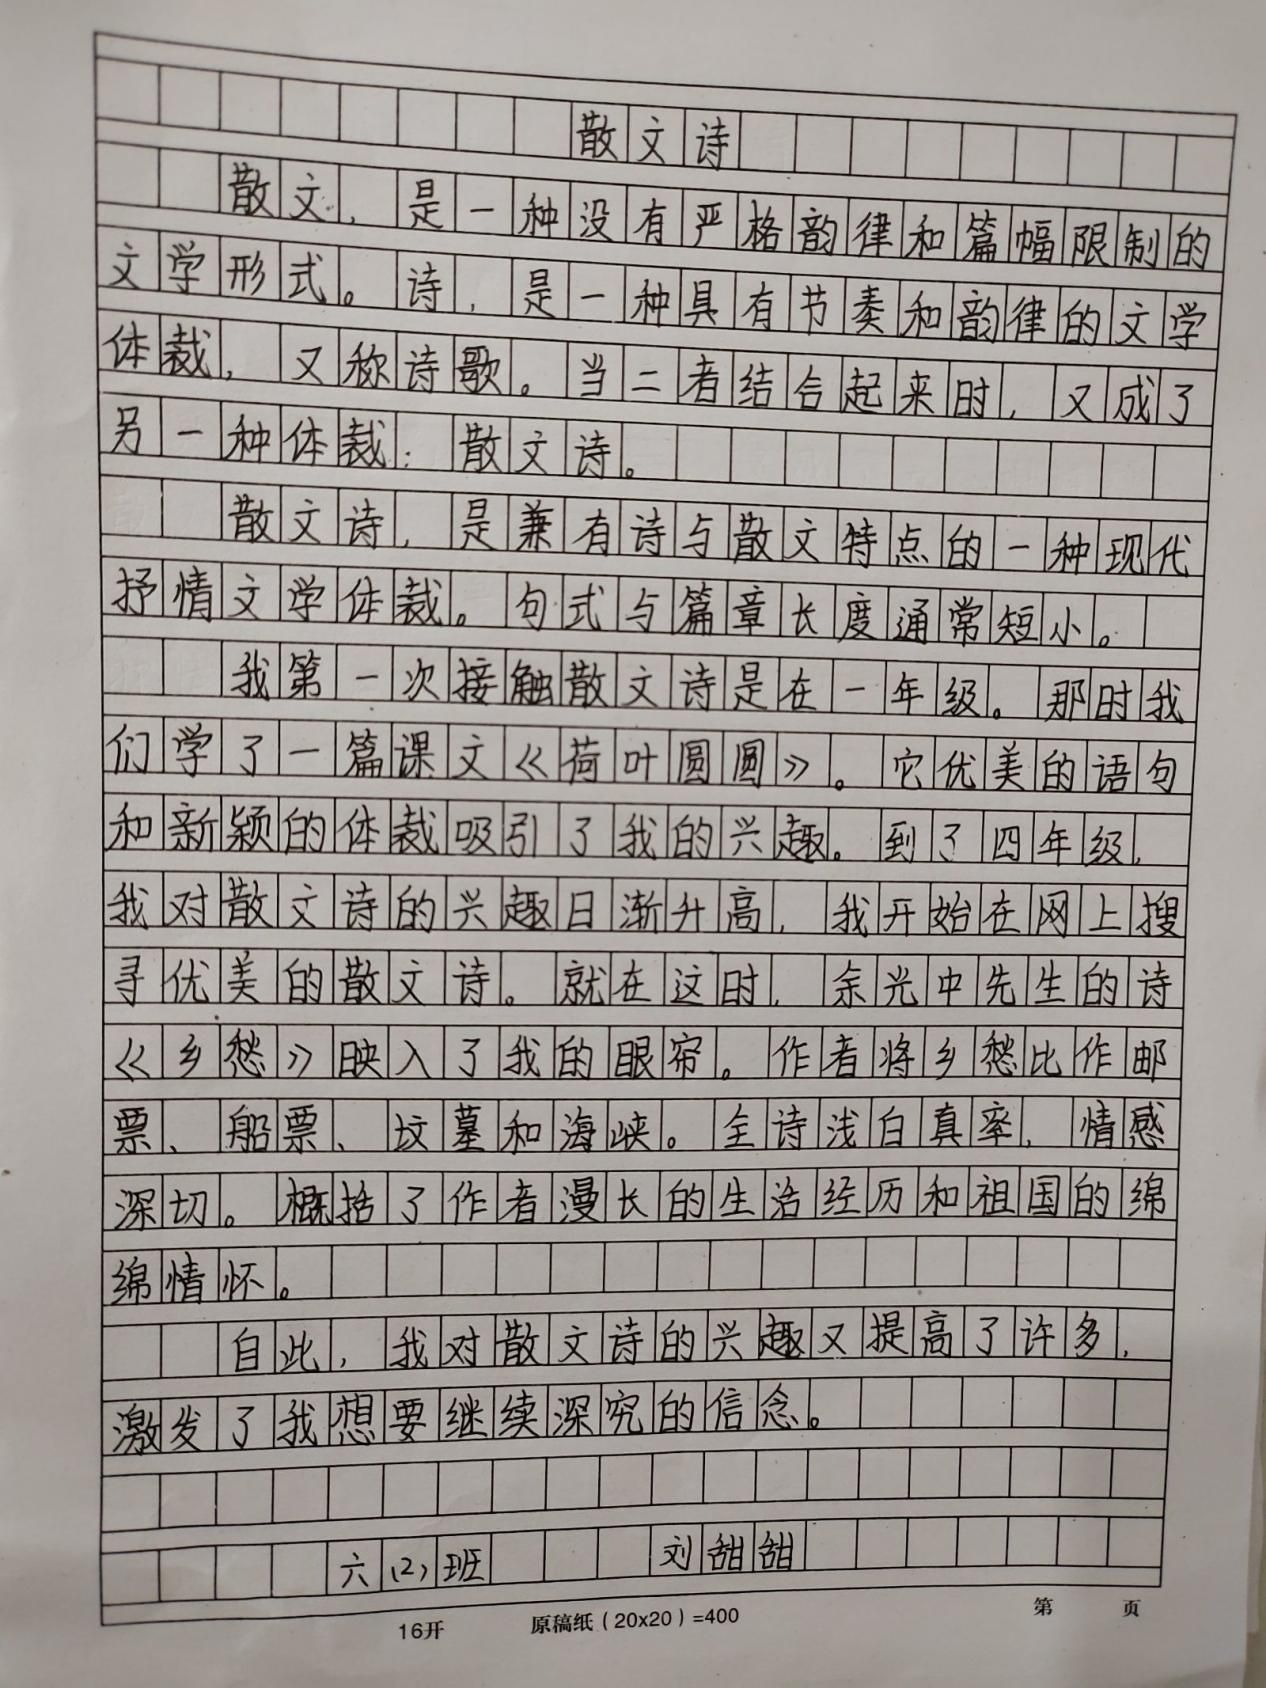 散文诗
散文，是一种没有严格韵律和篇幅限制的
文学形式。诗，是一种具有节奏和韵律的文学
体裁，又称诗歌。当二者结合起来时，又成了
另一种体裁：散文诗。
散文诗，是兼有诗与散文特点的一种现代
抒情文学体裁。句式与篇章长度通常短小。
我第一次接触散文诗是在一年级。那时我
们学了一篇课文《荷叶圆圆》。它优美的语句
和新颖的体裁吸引了我的兴趣。到了四年级，
我对散文诗的兴趣日渐升高，我开始在网上搜
寻优美的散文诗。就在这时，余光中先生的诗
《乡愁》映入了我的眼帘。作者将乡愁比作邮
票、船票、坟墓和海峡。全诗浅白真率，情感
深切。概括了作者漫长的生活经历和祖国的绵
绵情怀。
自此，我对散文诗的兴趣又提高了许多，
激发了我想要继续深究的信念。
六(2)班 刘甜甜
16开 原稿纸（20x20）=400 第 页